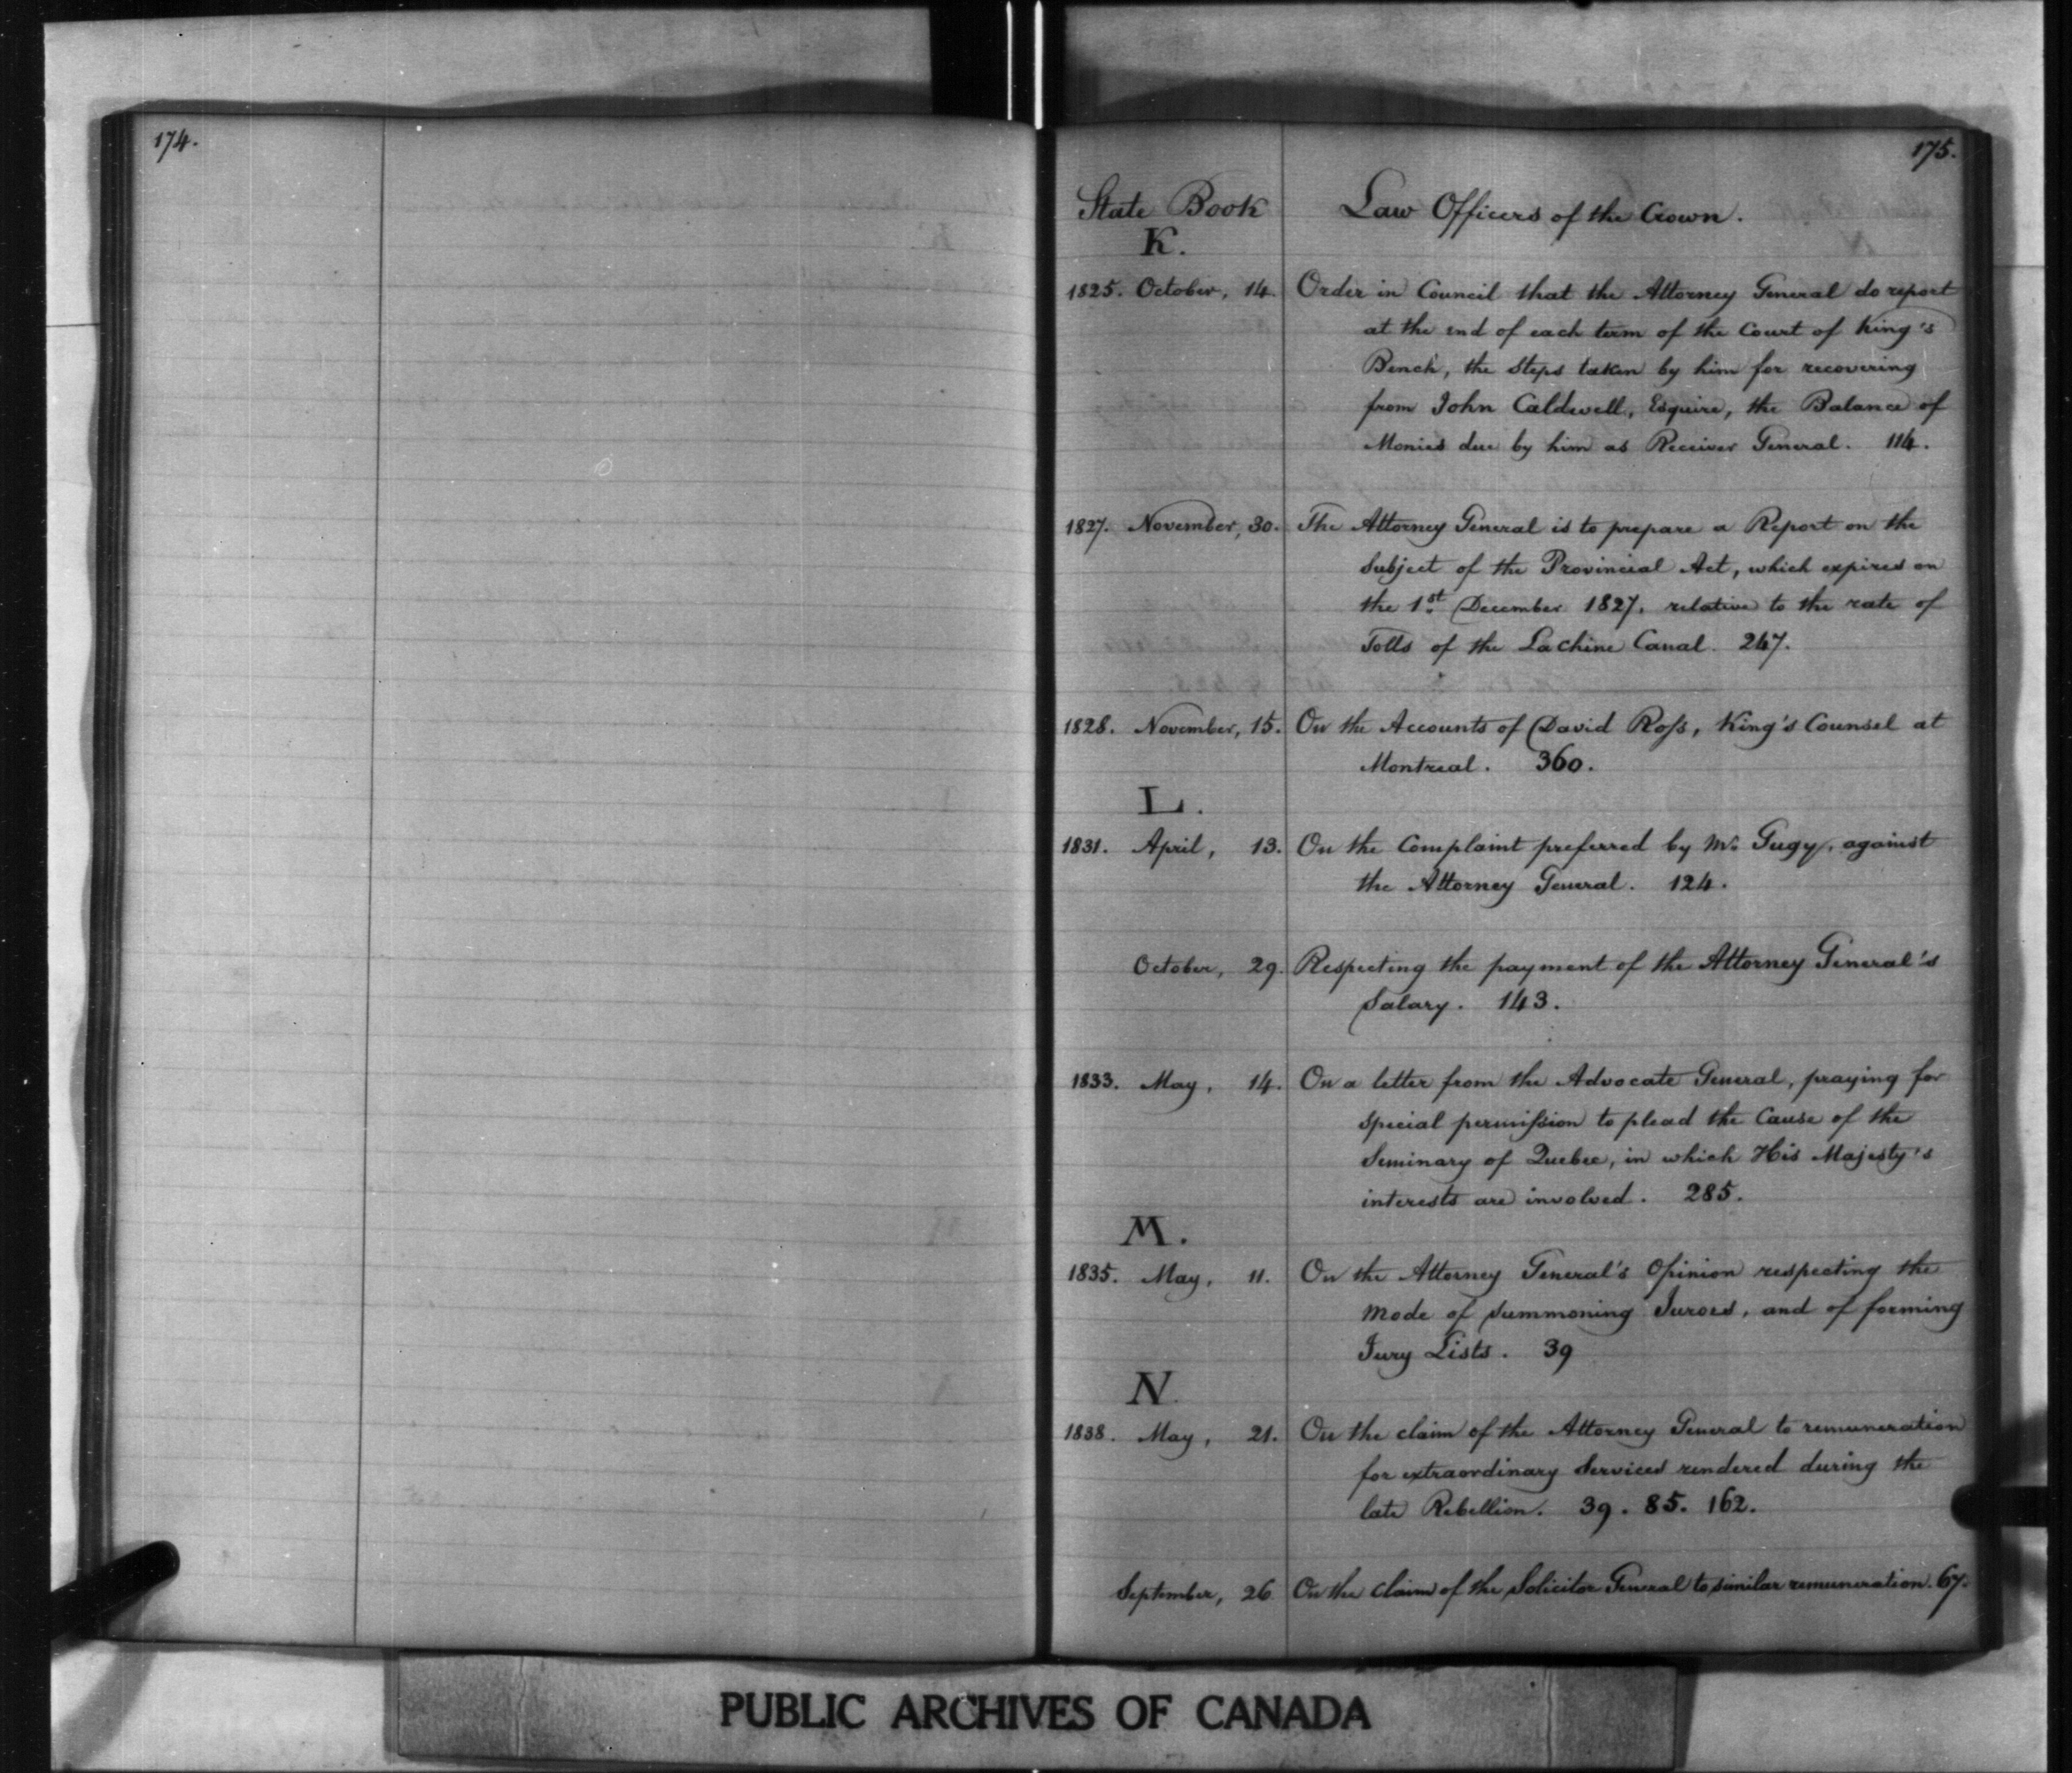 174.
175.
State Book
Law Officers of the Crown.
K.
1825. October, 14. Order in Council that the Attorney General do report
at the end of each term of the Court of King's
Bench, the Steps taken by him for recovering
from John Caldwell, Esquire, the Balance of
Monies due by him as Receiver General. 114.
1827. November, 30. The Attorney General is to prepare a Report on the
Subject of the Provincial Act, which expires on
the 1st December 1827, relative to the rate of
Tolls of the Lachine Canal. 247.
1828. November, 15. On the Accounts of David Roſs, King's Counsel at
Montreal. 360.
L.
1831. April, 13. On the Complaint preferred by Mr. Gugy, against
the Attorney General. 124.
October, 29. Respecting the payment of the Attorney General's
Salary. 143.
1833. May, 14. On a letter from the Advocate General, praying for
special permiſsion to plead the Cause of the
Seminary of Quebec, in which His Majesty's
interests are involved. 285.
M.
1835. May, 11. On the Attorney General's Opinion respecting the
Mode of summoning Jurors, and of forming
Jury Lists. 39
N.
1838. May, 21. On the claim of the Attorney General to remuneration
for extraordinary Services rendered during the
late Rebellion. 39. 85. 162.
September, 26 On the claim of the Solicitor General to similar remuneration. 67.
PUBLIC ARCHIVES OF CANADA